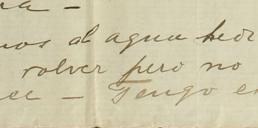 ra -
nos al agua hedi
volver pero no
ce - Tengo es